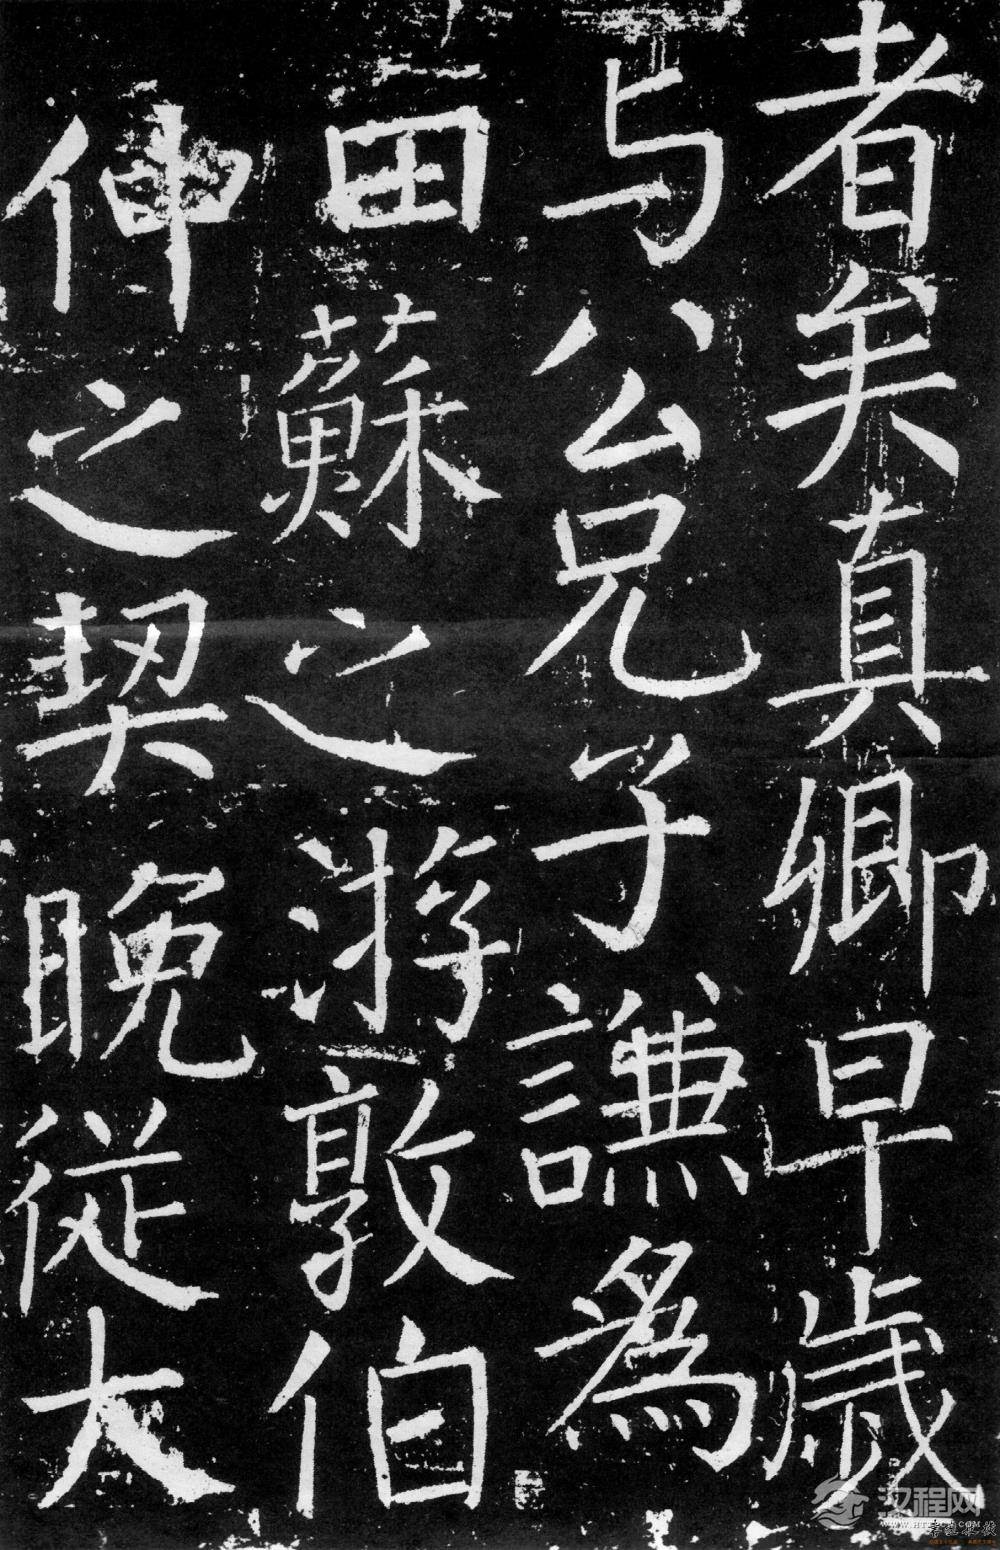 者矣真卿早歲
与公兄子謙為
田蘇之游敦伯
仲之契晚従大
汉程网
WWW.HTTPCN.COM